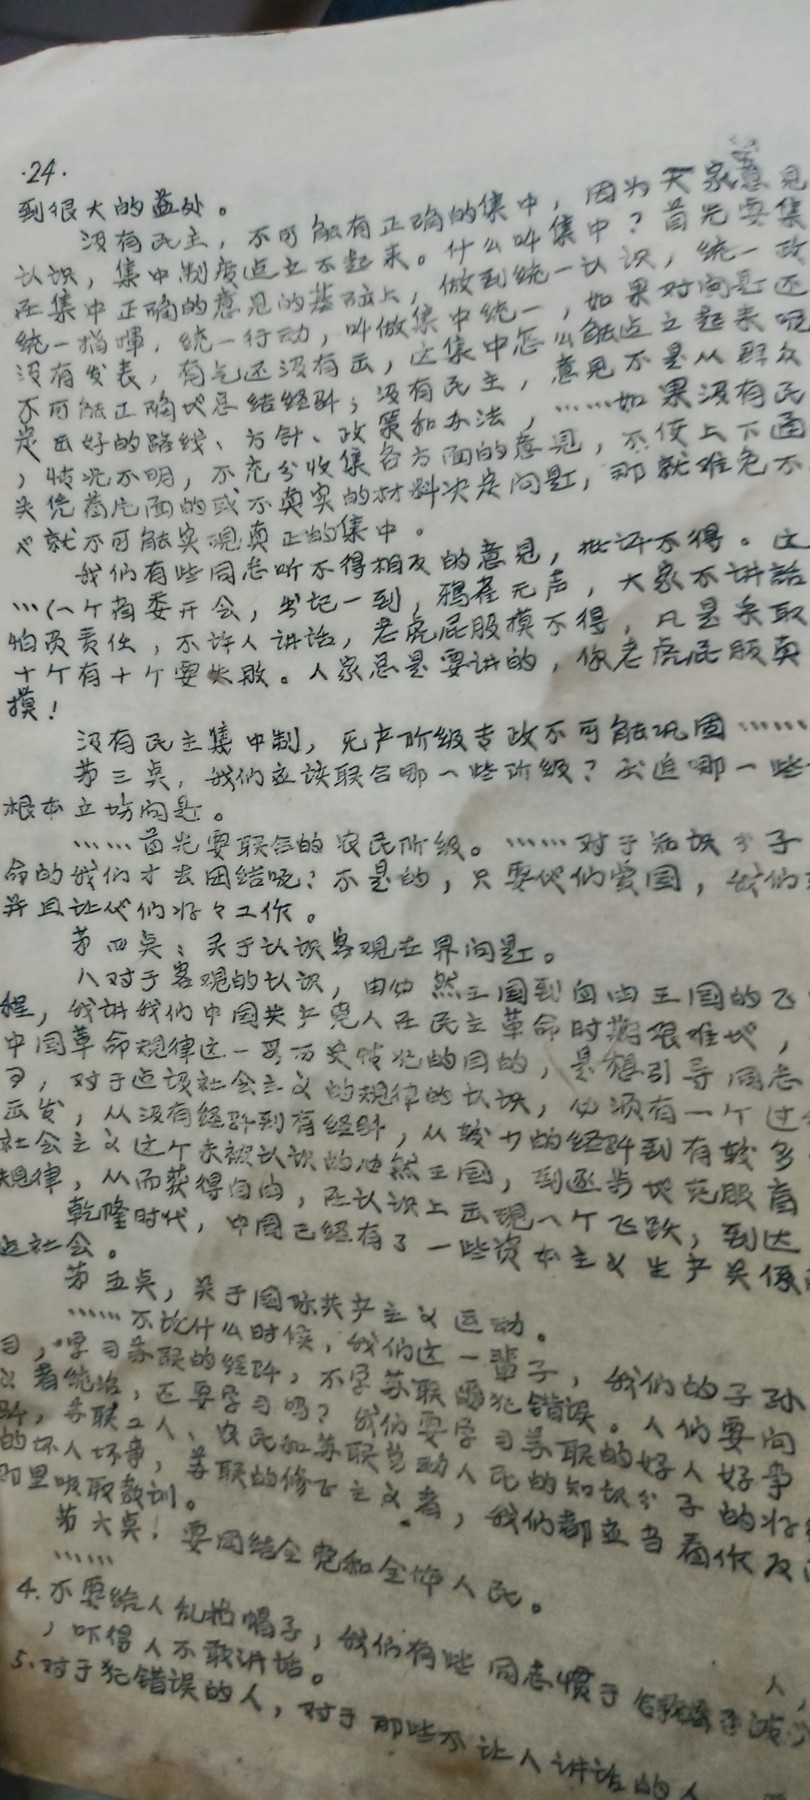 ·24·
到很大的益处。
没有民主，不可能有正确的集中，因为大家意见
认识，集中制度点立不起来。什么叫集中？首先要集
在集中正确的意见的基础上，做到统一认识，统一政
统一指挥，统一行动，叫做集中统一，如果对问题还
没有发表，有气还没有出，这集中怎么能点立起来呢
不可能正确地总结经验；没有民主，意见不是从群众
定出好的路线、方针、政策和办法，……如果没有民
，情况不明，不充分收集各方面的意见，不使上下通
关凭着片面的或不真实的材料决定问题，那就难免不
也就不可能实现真正的集中。
我们有些同志听不得相反的意见，批评不得。这
…（一个省委开会，书记一到，鸦雀无声，大家不讲話
怕负责任，不许人讲话，老虎屁股摸不得，凡是采取
十个有十个要失败。人家总是要讲的，你老虎屁股真
摸！
没有民主集中制，无产阶级专政不可能巩固……
第三点，我们应该联合哪一些阶级？压迫哪一些
根本立场问题。
……首先要联合的农民阶级。……对于知识分子
命的我们才去团结呢？不是的，只要他们爱国，我们
并且让他们好々工作。
第四点：关于认识客观世界问题。
人对于客观的认识，由必然王国到自由王国的飞
程，我讲我们中国共产党人在民主革命时期艰难地，
中国革命规律这一 历史情况的目的，是想引导同志
习，对于点设社会主义的规律的认识，必须有一个过
出发，从没有经验到有经验，从较少的经验到有较多
社会主义这个未被认识的必然王国，到逐步地克服盲
规律，从而获得自由，在认识上出现一个飞跃，到达
乾隆时代，中国已经有了一些资本主义生产关係
建社会。
第五点，关于国际共产主义运动。
……不论什么时候，我们这一輩子，我们的子孙
习，学习苏联的经验，不学苏联要犯错误。人们要问
义者统治，还要学习吗？我们要学习苏联的好人好事
验，苏联工人、农民和苏联劳动人民的知识分子的好
的坏人坏事，苏联的修正主义者，我们都应当看作反
那里吸取教训。
第六点：要团结全党和全体人民。
……
4.不要给人乱扣帽子，我们有些同志惯于
人，
，吓得人不敢讲话。
5.对于犯错误的人，对于那些不让人讲话的人